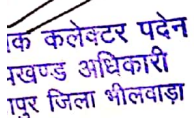 क कलेक्टर पदेन
खण्ड अधिकारी
पुर जिला भीलवाड़ा